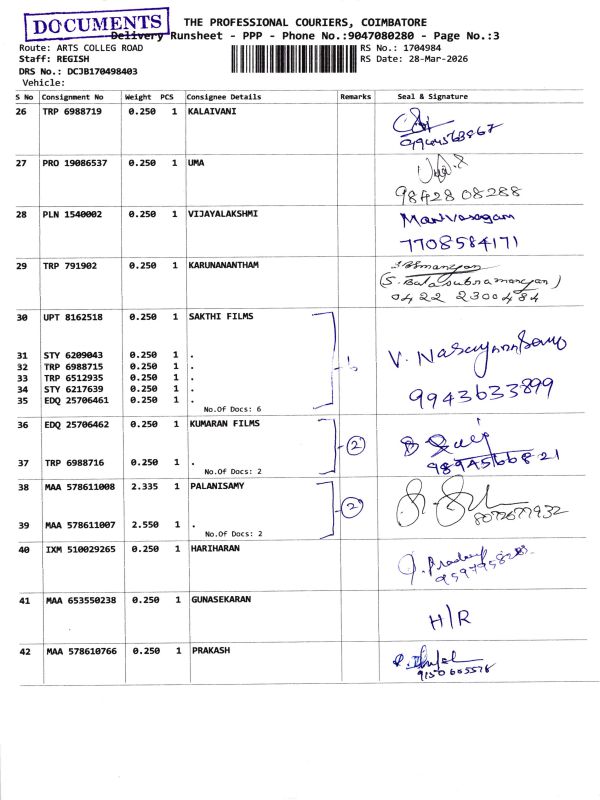 DOCUMENTS
THE PROFESSIONAL COURIERS, COIMBATORE
Delivery Runsheet - PPP - Phone No.:9047080280 - Page No.:3
Route: ARTS COLLEG ROAD
RS No.: 1704984
Staff: REGISH
RS Date: 28-Mar-2026
DRS No.: DCJB170498403
Vehicle:
S No Consignment No Weight PCS Consignee Details Remarks Seal & Signature
26 TRP 6988719 0.250 1 KALAIVANI
27 PRO 19086537 0.250 1 UMA
98428 08288
28 PLN 1540002 0.250 1 VIJAYALAKSHMI
Manivasagam
7708584171
29 TRP 791902 0.250 1 KARUNANANTHAM
(S. Balasubramaniyan)
0422 2300484
30 UPT 8162518 0.250 1 SAKTHI FILMS
31 STY 6209043 0.250 1 .
32 TRP 6988715 0.250 1 .
33 TRP 6512935 0.250 1 .
34 STY 6217639 0.250 1 .
35 EDQ 25706461 0.250 1 .
No.Of Docs: 6
9943633899
36 EDQ 25706462 0.250 1 KUMARAN FILMS
2
37 TRP 6988716 0.250 1 .
No.Of Docs: 2
38 MAA 578611008 2.335 1 PALANISAMY
2
39 MAA 578611007 2.550 1 .
No.Of Docs: 2
40 IXM 510029265 0.250 1 HARIHARAN
41 MAA 653550238 0.250 1 GUNASEKARAN
H/R
42 MAA 578610766 0.250 1 PRAKASH